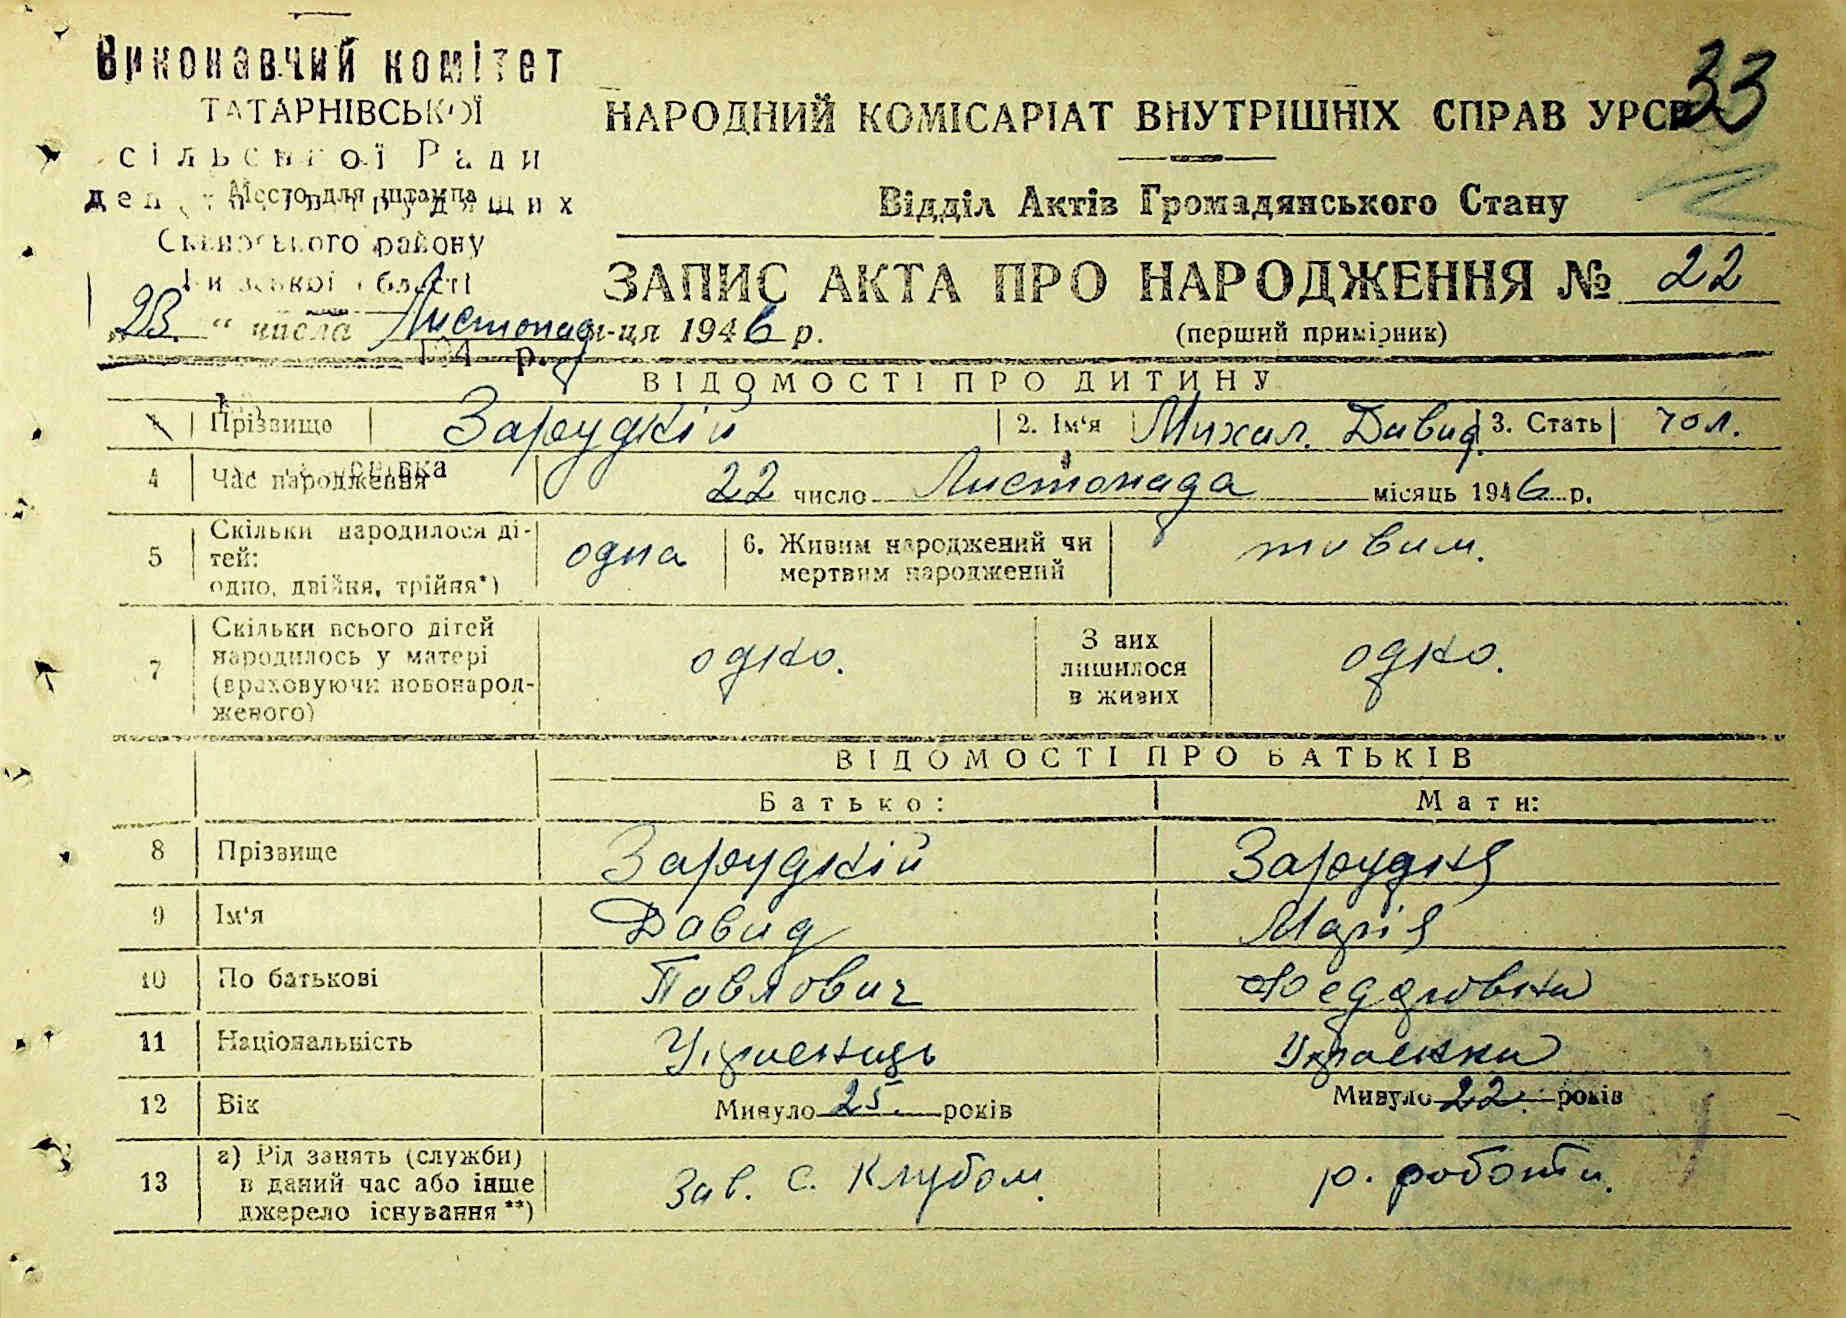 Виконавчий комітет
ТАТАРНІВСЬКОЇ
сільської Ради
Место для штампа
Сквирського району
33
НАРОДНИЙ КОМІСАРІАТ ВНУТРІШНІХ СПРАВ УРСР
Відділ Актів Громадянського Стану
ЗАПИС АКТА ПРО НАРОДЖЕННЯ № 22
(перший примірник)
„23“ числа Листопад м-ця 1946 р.
194 р.
ВІДОМОСТІ ПРО ДИТИНУ
1 Прізвище Зарудкій 2. Ім‘я Михал. Давид. 3. Стать чол.
4 Час народження 22 число Листопада місяць 1946 р.
5 Скільки народилося ді-
тей:
одно, двійня, трійня*) одна 6. Живим народжений чи
мертвим народжений живим.
7 Скільки всього дітей
народилось у матері
(враховуючи новонарод-
женого) одно. З них
лишилося
в живих одно.
ВІДОМОСТІ ПРО БАТЬКІВ
Батько: Мати:
8 Прізвище Зарудкій Зарудня
9 Ім‘я Давид Марія
10 По батькові Павлович Феддровна
11 Національність Украенець Украенка
12 Вік Минуло 25 років Минуло 22. років
13 а) Рід занять (служби)
в даний час або інше
джерело існування**) Зав. с. Клубом. р. роботи.